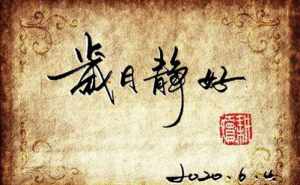 歲月靜好
2020.6.4